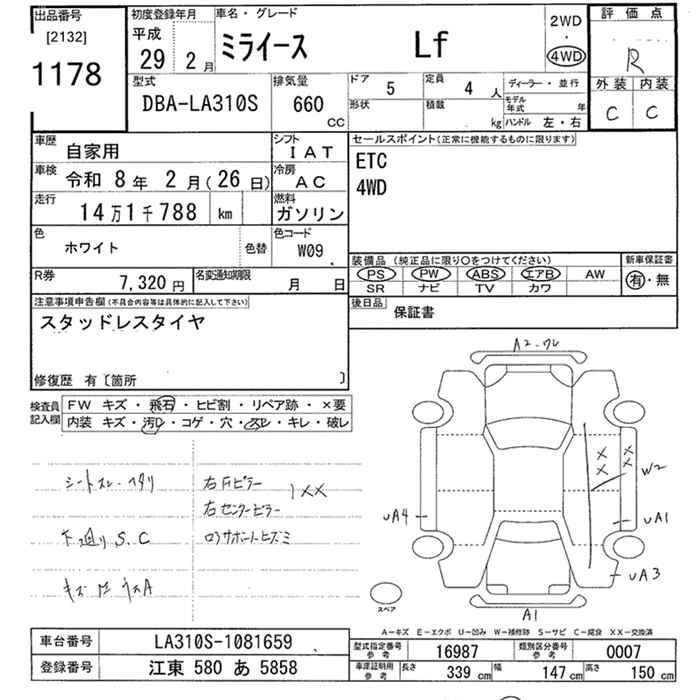 出品番号
[2132]
1178
初度登録年月
平成
29 2月
車名・グレード
ミライース Lf
2WD
・
4WD
評価点
R
外装 内装
C C
型式
DBA-LA310S
排気量
660
CC
ドア
5
定員
4 人
ディーラー・並行
形状
積載
kg
モデル
年式 年
ハンドル 左・右
車歴
自家用
シフト
IAT
車検
令和 8年 2月(26日)
冷房
AC
走行
14万1千788 km
燃料
ガソリン
色
ホワイト
色替
色コード
W09
R券
7,320円
名変通知期限
月 日
セールスポイント(正常に機能するものに限ります)
ETC
4WD
装備品 (純正品に限り○をつけてください)
PS PW ABS エアB AW
SR ナビ TV カワ
新車保証書
有・無
後日品
保証書
注意事項申告欄(不具合内容等は具体的に記入して下さい)
スタッドレスタイヤ
修復歴 有〔箇所 〕
検査員
記入欄
FW キズ・飛石・ヒビ割・リペア跡・×要
内装 キズ・汚レ・コゲ・穴・スレ・キレ・破レ
シートスレ・ヘタリ
下廻りS.C
右Fピラー
右センターピラー
1XX
コアサポートヒズミ
A2
W2
UA4
UA1
UA3
A1
スペア
A－キズ E－エクボ U－凹み W－補修跡 S－サビ C－腐食 XX－交換済
車台番号
LA310S-1081659
登録番号
江東 580 あ 5858
型式指定番号
参考
16987
類別区分番号
参考
0007
車庫証明用
参考
長さ
339 cm
幅
147 cm
高さ
150 cm